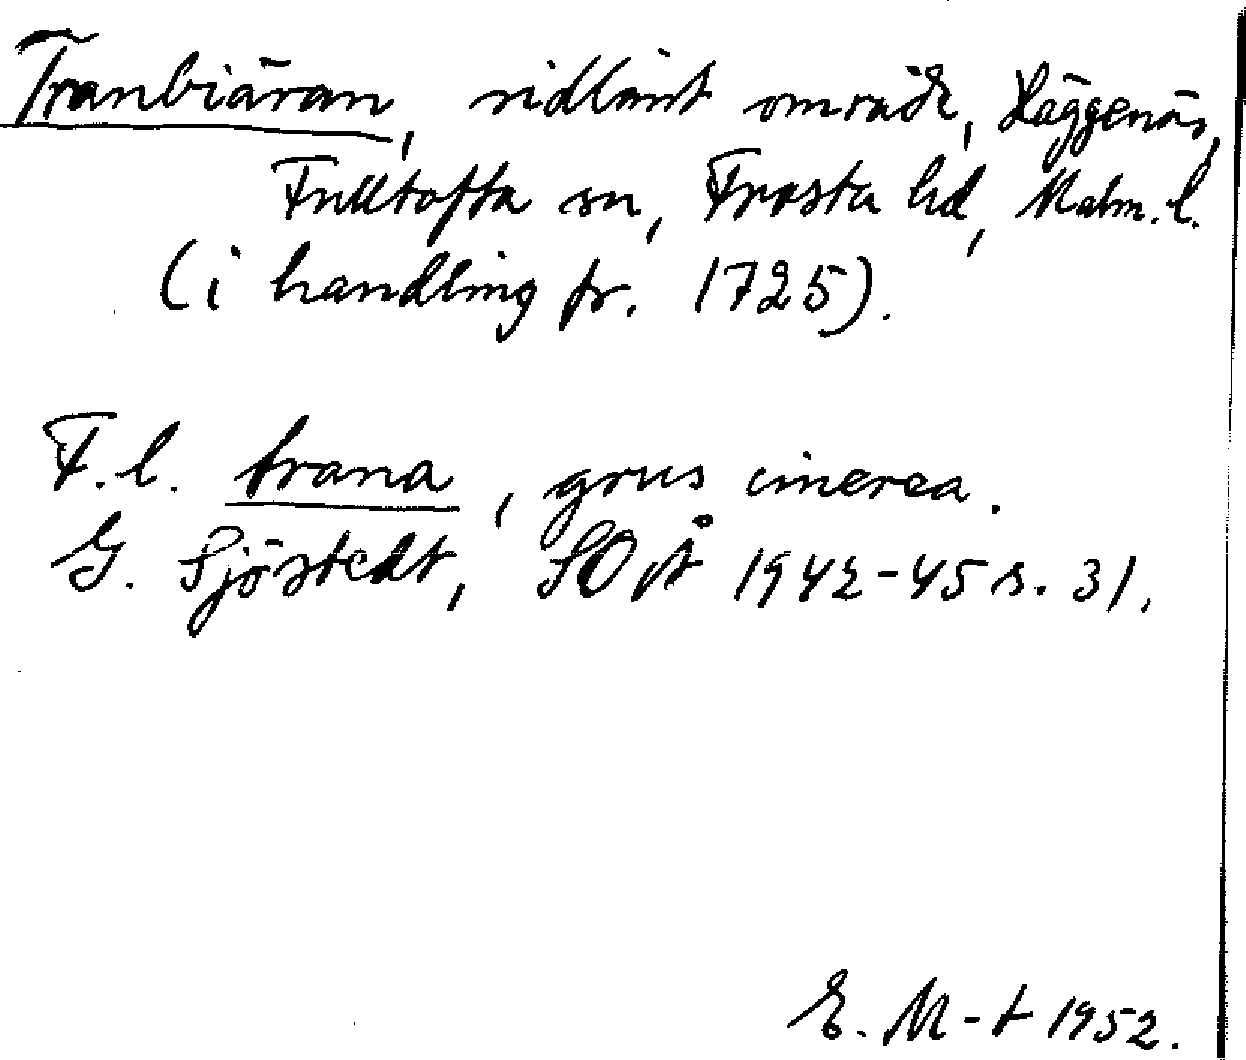 Tranbiäran, sidlänt område, Häggenäs,
Fulltofta sn, Frosta hd, Malm. l.
(i handling fr. 1725).
F. l. trana, grus cinerea.
G. Sjöstedt, SOÅ 1942-45 s. 31.
E. M-t 1952.